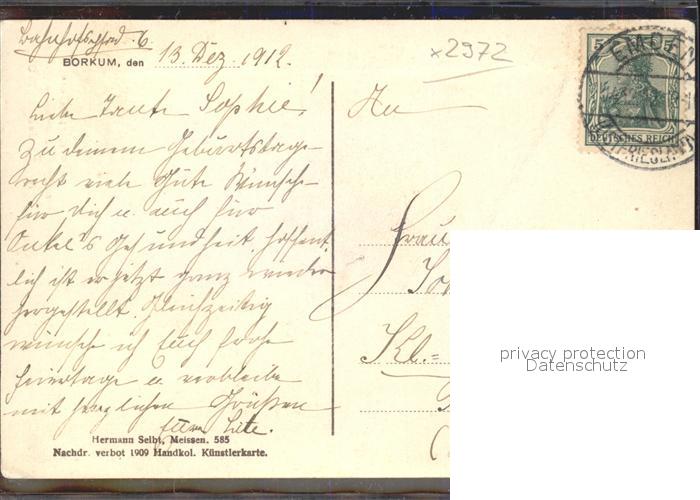 Bahnhofspfad 6
BORKUM, den 13. Dez. 1912.
x2972
Liebe Tante Sophie!
Zu deinem Geburtstage
recht viele Gute Wünsche
für Dich u. auch für
Onkel's Gesundheit. Hoffent
lich ist er jetzt ganz wieder
hergestellt. Gleichzeitig
wünsche ich Euch frohe
Feiertage u. verbleibe
mit herzlichen Grüßen
Eure
Hermann Seibt, Meissen. 585
Nachdr. verbot 1909 Handkol. Künstlerkarte.
An
Frau
Kl.=
5
DEUTSCHES REICH
EMDEN
privacy protection
Datenschutz